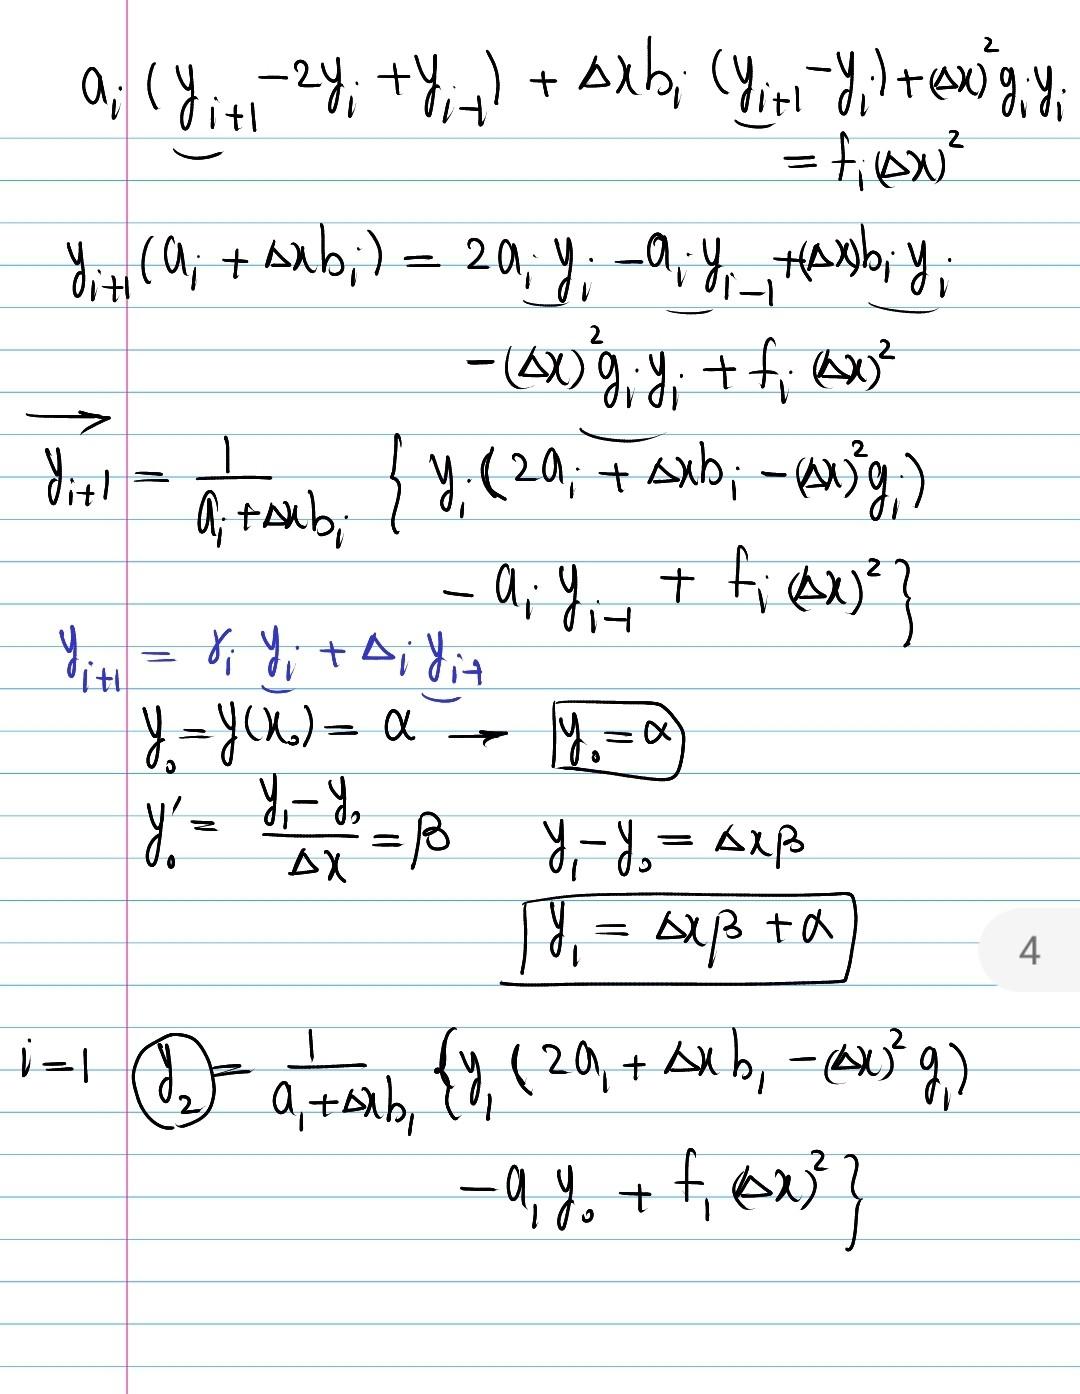 aᵢ (yᵢ₊₁ - 2yᵢ + yᵢ₋₁) + Δx bᵢ (yᵢ₊₁ - yᵢ) + (Δx)² gᵢ yᵢ
= fᵢ (Δx)²
yᵢ₊₁ (aᵢ + Δx bᵢ) = 2aᵢ yᵢ - aᵢ yᵢ₋₁ + (Δx) bᵢ yᵢ
- (Δx)² gᵢ yᵢ + fᵢ (Δx)²
→
yᵢ₊₁ = 1/(aᵢ + Δx bᵢ) { yᵢ (2aᵢ + Δx bᵢ - (Δx)² gᵢ)
- aᵢ yᵢ₋₁ + fᵢ (Δx)² }
yᵢ₊₁ = γᵢ yᵢ + Δᵢ yᵢ₋₁
y₀ = y(x₀) = α → y₀ = α
y₀' = (y₁ - y₀)/Δx = β y₁ - y₀ = Δx β
y₁ = Δx β + α
4
i = 1 y₂ = 1/(a₁ + Δx b₁) { y₁ (2a₁ + Δx b₁ - (Δx)² g₁)
- a₁ y₀ + f₁ (Δx)² }